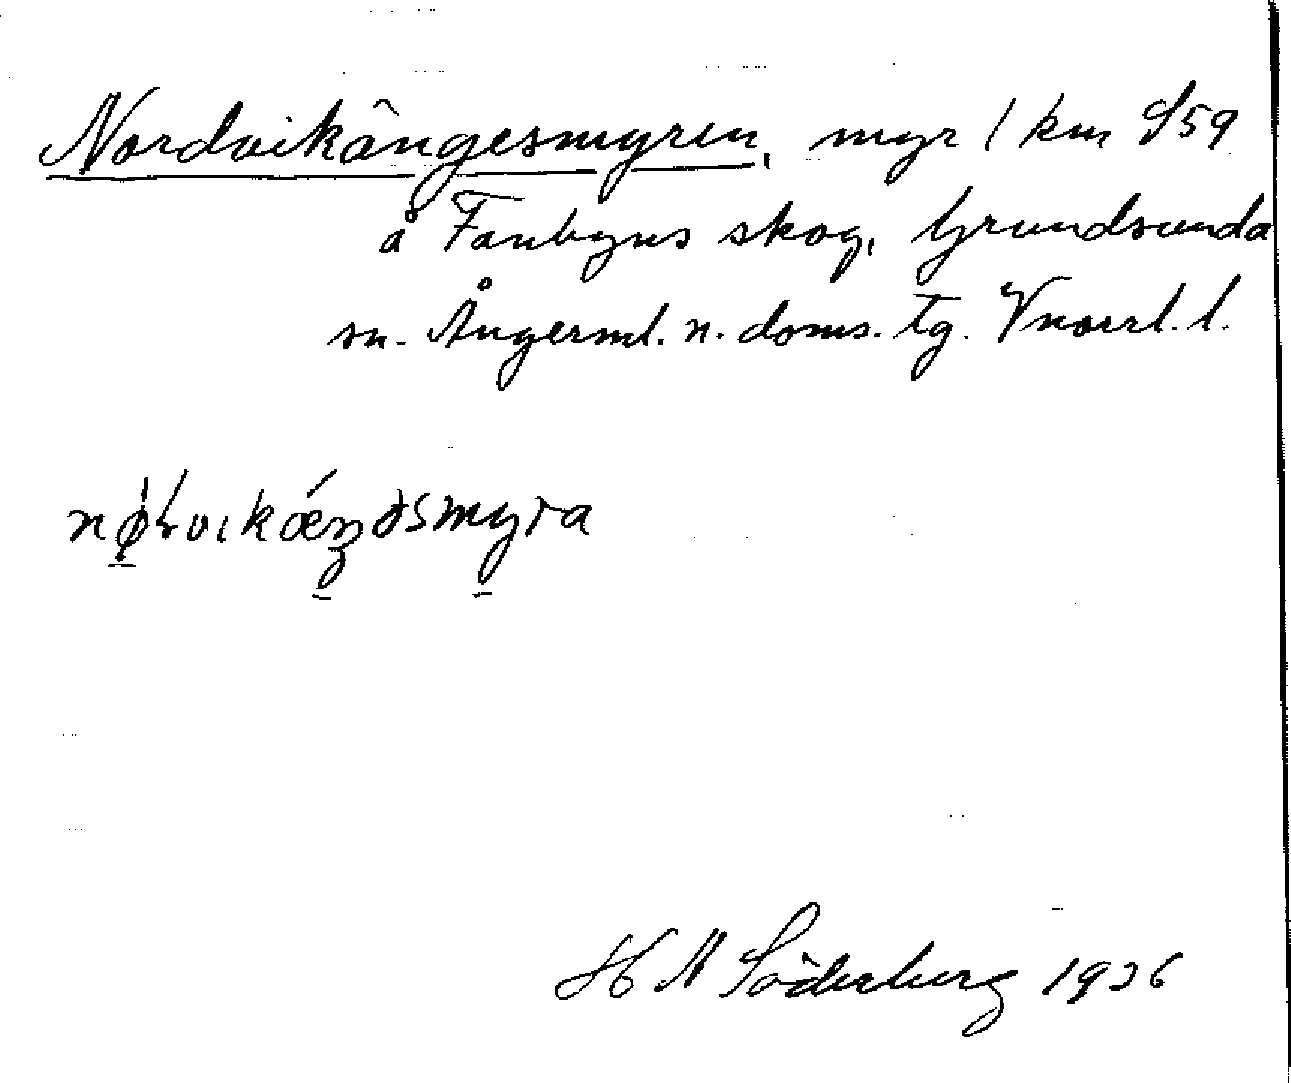 Nordvikängesmyren, myr 1 km S 59
å Fanbyns skog, Grundsunda
sn. Ångerml. n. doms. tg. Vnorrl. l.
H N Söderberg 1936